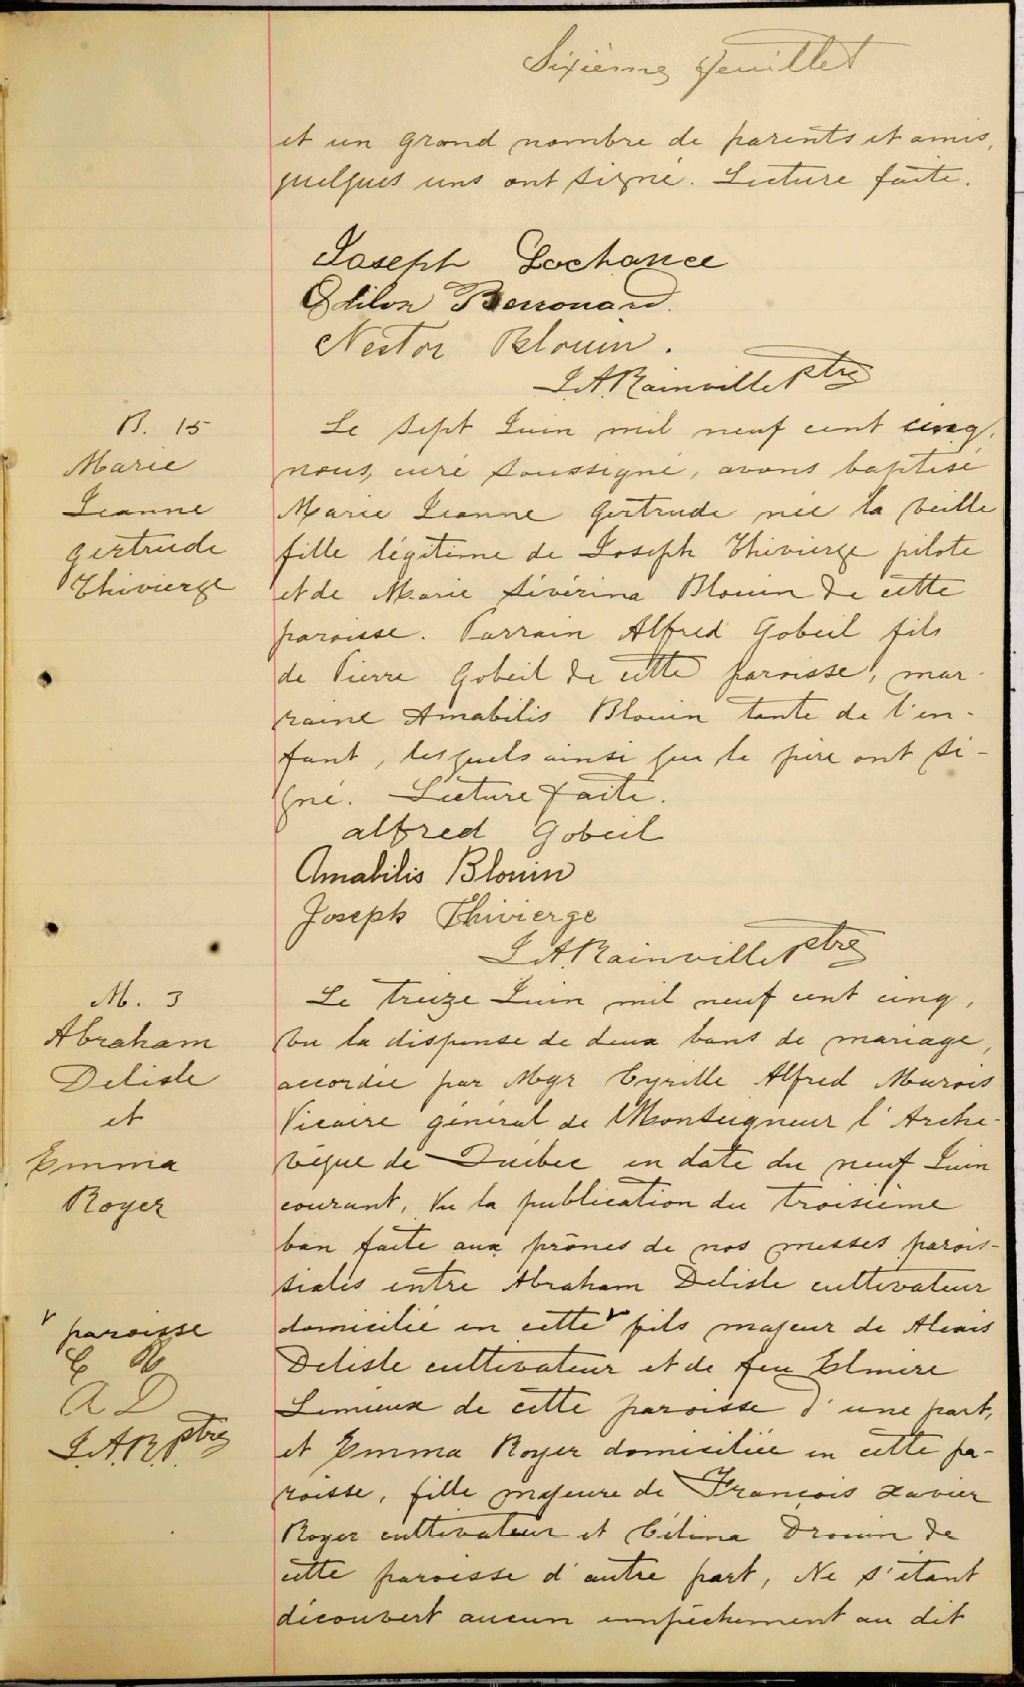 Sixième feuillet
et un grand nombre de parents et amis,
quelques uns ont signé. Lecture faite.
Joseph Lachance
Odilon Berrouard.
Nestor Blouin.
J.A. Rainville Ptre
B. 15
Marie
Jeanne
Gertrude
Thivierge
Le sept Juin mil neuf cent cinq,
nous, curé soussigné, avons baptisé
Marie Jeanne Gertrude née la veille
fille légitime de Joseph Thivierge pilote
et de Marie Sévérina Blouin de cette
paroisse. Parrain Alfred Gobeil fils
de Pierre Gobeil de cette paroisse, mar-
raine Amabilis Blouin tante de l'en-
fant, lesquels ainsi que le père ont si-
gné. Lecture faite.
alfred Gobeil
Amabilis Blouin
Joseph Thivierge
J.A. Rainville Ptre
M. 3
Abraham
Delisle
et
Emma
Royer
Le treize Juin mil neuf cent cinq,
Vu la dispense de deux bans de mariage,
accordée par Mgr Cyrille Alfred Marois
Vicaire général de Monseigneur l'Arche-
vêque de Québec en date du neuf Juin
courant, Vu la publication du troisième
ban faite aux prônes de nos messes parois-
siales entre Abraham Delisle cultivateur
domicilié en cette v fils majeur de Alexis
Delisle cultivateur et de feu Elmire
Lemieux de cette paroisse d'une part,
et Emma Royer domiciliée en cette pa-
roisse, fille majeure de François Xavier
Royer cultivateur et Célina Drouin de
cette paroisse d'autre part, Ne s'étant
découvert aucun empêchement au dit
v paroisse
E R
A D
J.A.R. Ptre